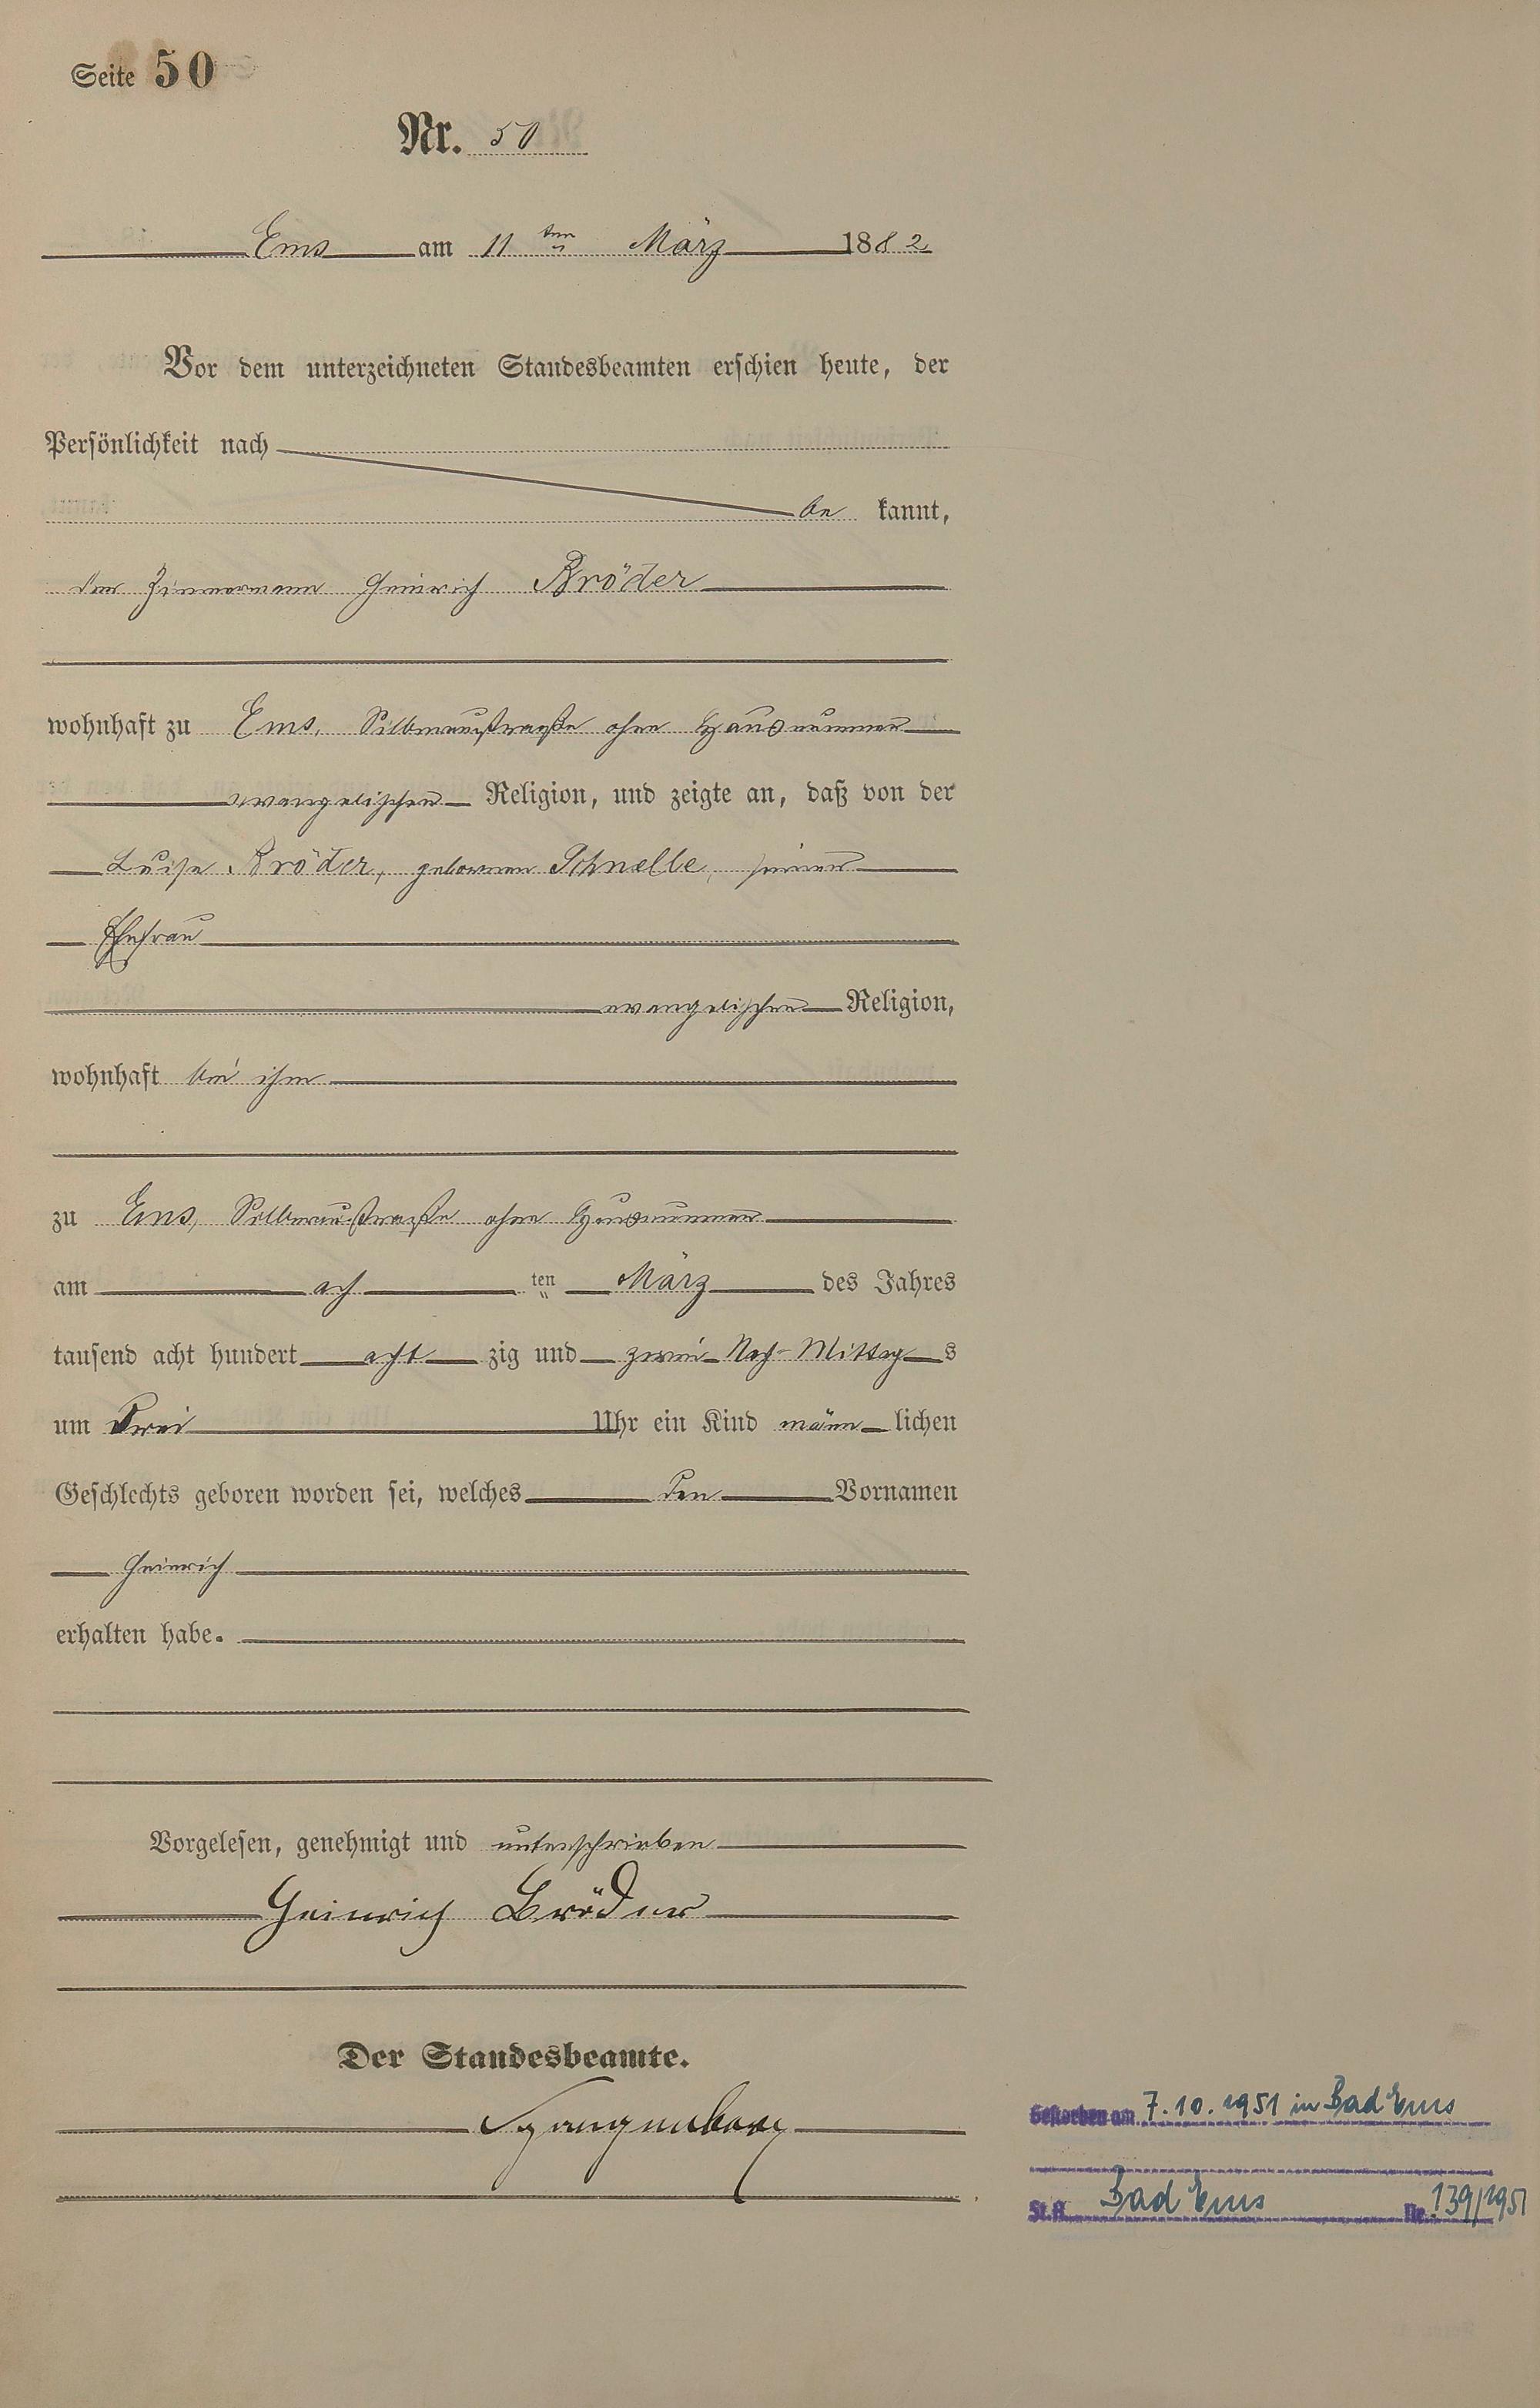 Seite 50
Nr. 50
Ems am 11 ten März 1882
Vor dem unterzeichneten Standesbeamten erschien heute, der
Persönlichkeit nach
be kannt,
der Zimmermann Heinrich Bröder
wohnhaft zu Ems, Silberaustraße ohne Hausnummer
evangelischer Religion, und zeigte an, daß von der
Luise Bröder, geborenen Schnelle, seiner
Ehefrau
evangelischer Religion,
wohnhaft bei ihm
zu Ems, Silberaustraße ohne Hausnummer
am ach ten März des Jahres
tausend acht hundert acht zig und zwei Nach Mittag s
um drei Uhr ein Kind männ lichen
Geschlechts geboren worden sei, welches den Vornamen
Heinrich
erhalten habe.
Vorgelesen, genehmigt und unterschrieben
Heinrich Bröder
Der Standesbeamte.
Spangenberg
Gestorben am 7.10.1951 in Bad Ems
St.A. Bad Ems Nr. 139/1951